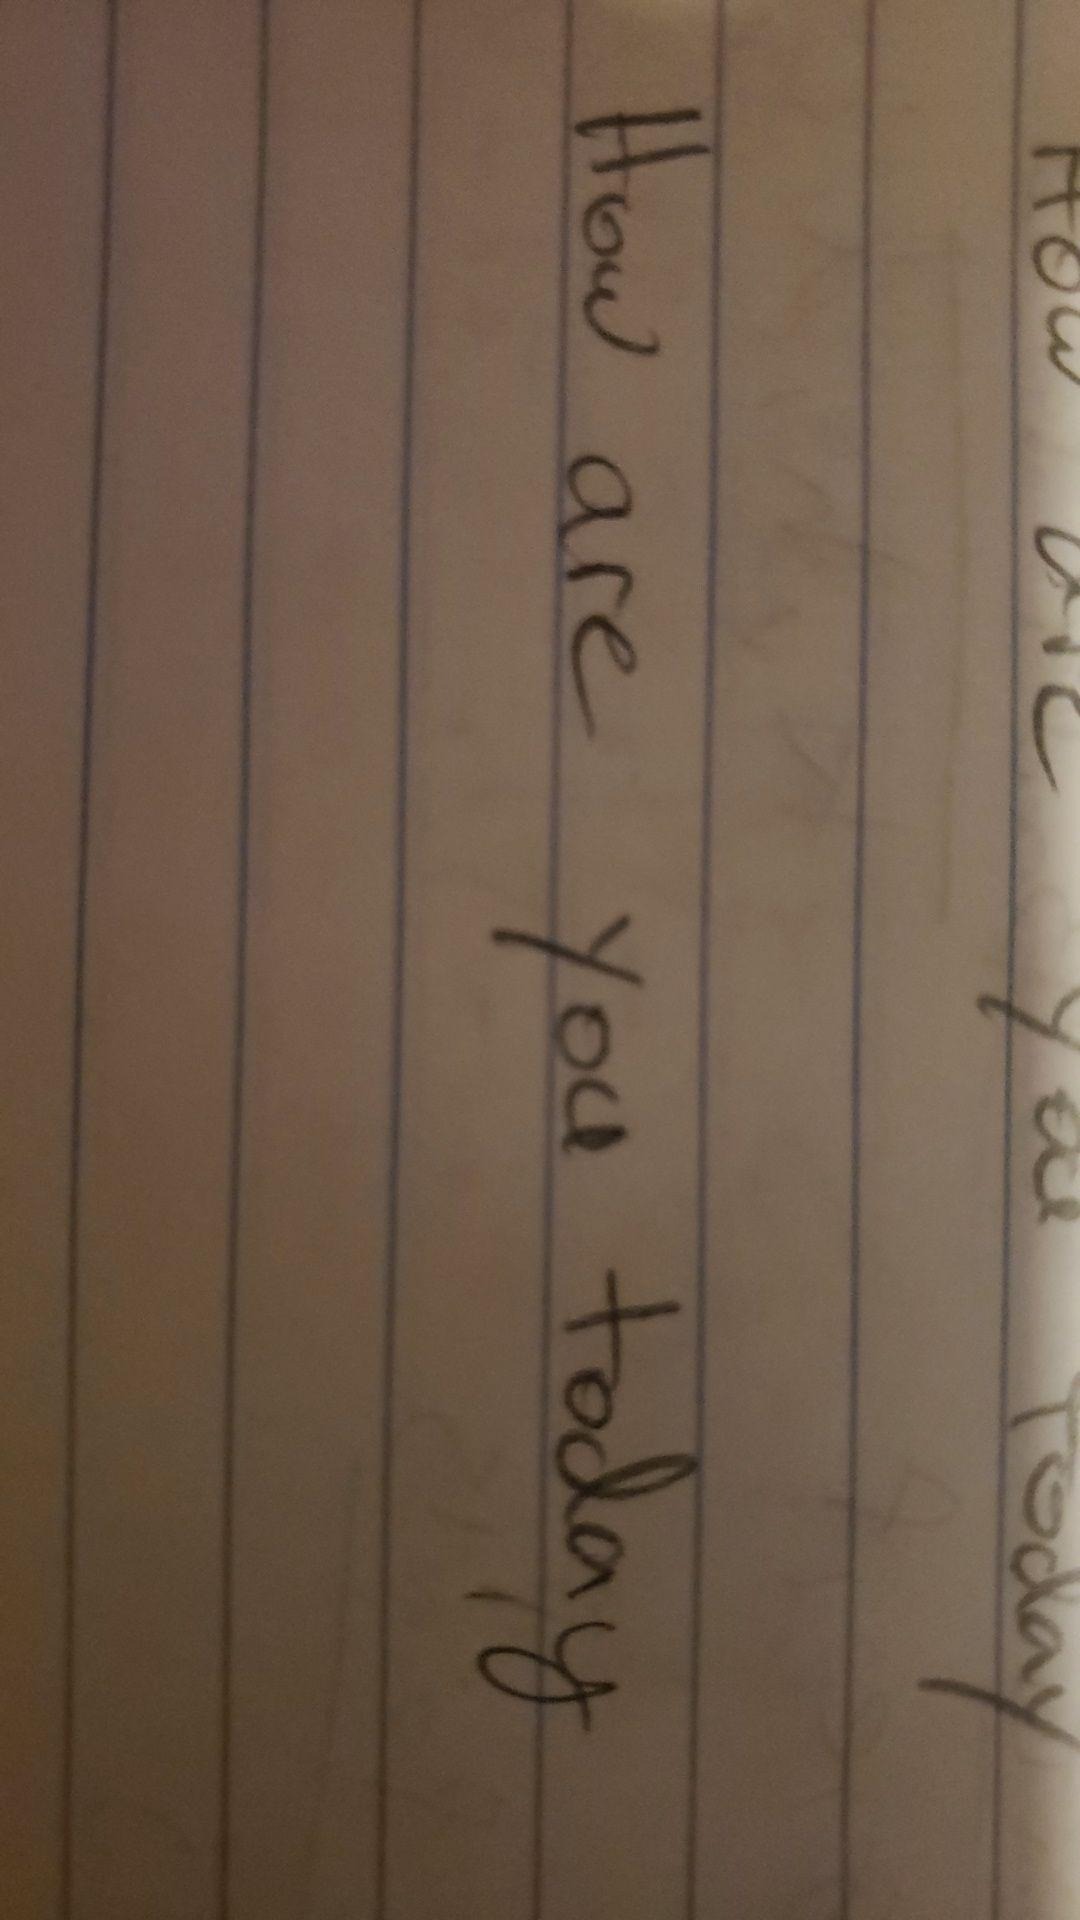 How are you today
How are you today